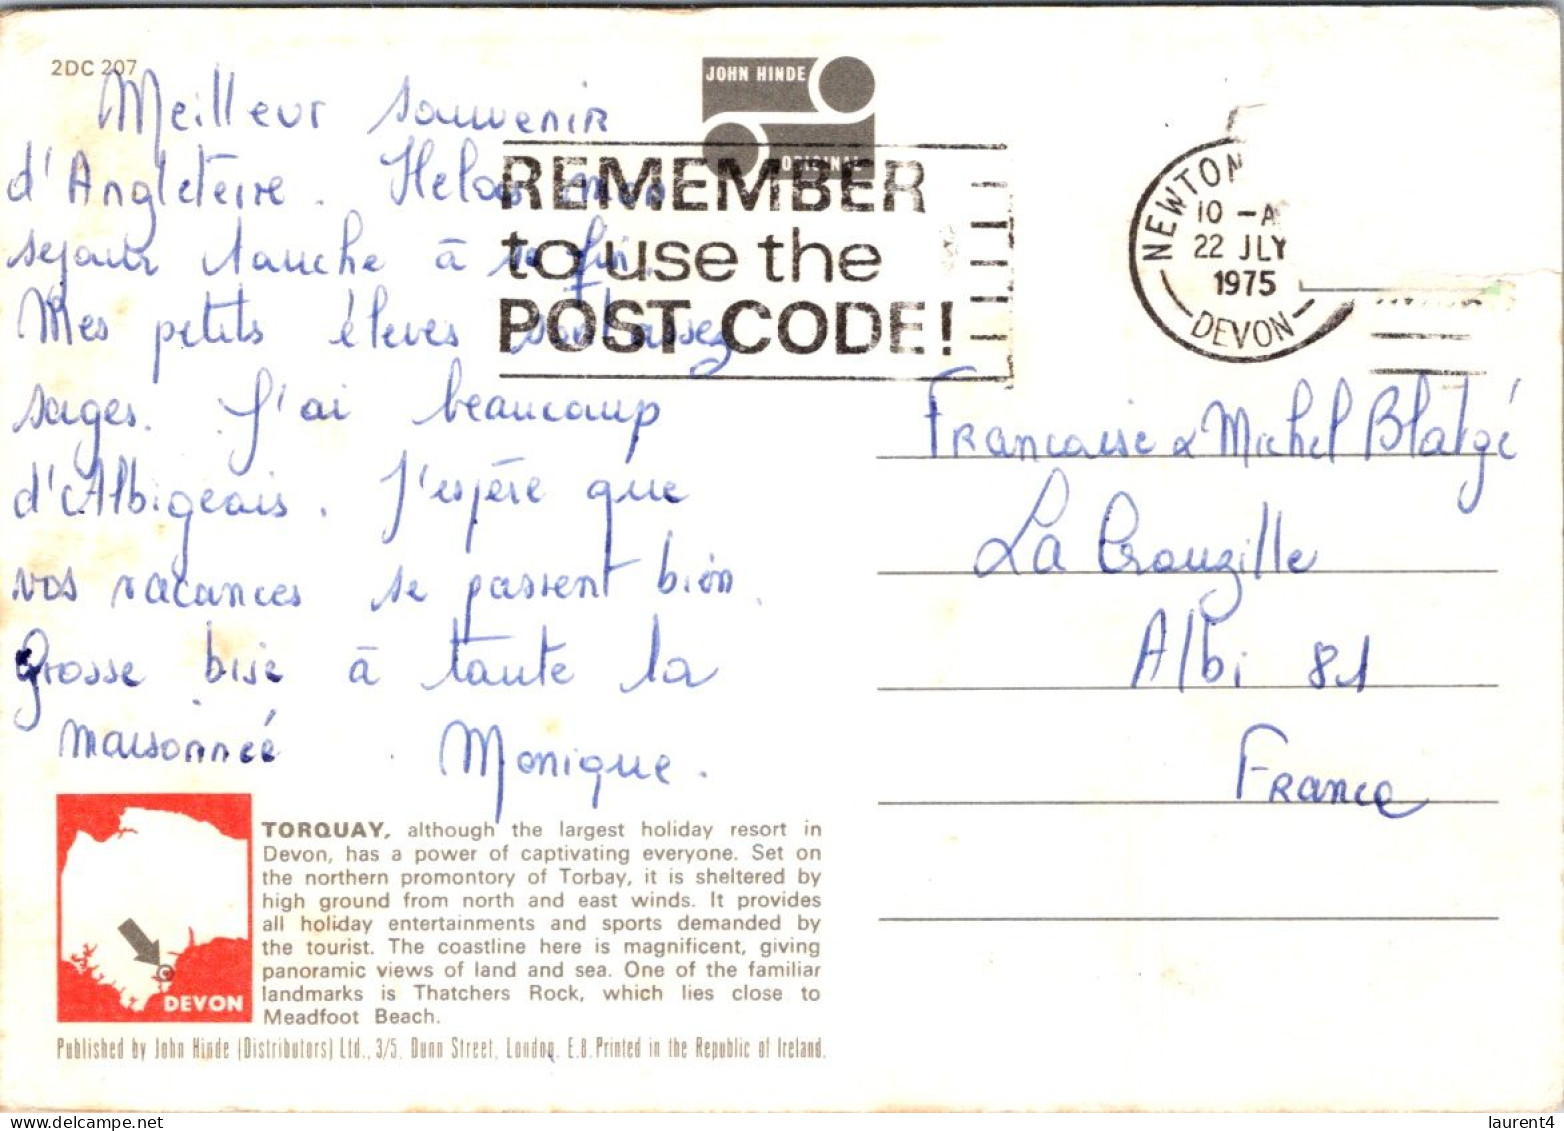 2DC 207
JOHN HINDE
ORIGINAL
Meilleur souvenir
d'Angleterre. Helas mon
sejour touche à sa fin.
Mes petits élèves sont assez
sages. J'ai beaucoup
d'Albigeois. J'espère que
vos vacances se passent bien.
Grosse bise à toute la
maisonnée. Monique.
REMEMBER
to use the
POST CODE!
NEWTON
10 - A
22 JLY
1975
DEVON
Francoise & Michel
La Crouzille
Albi 81
France
DEVON
TORQUAY, although the largest holiday resort in
Devon, has a power of captivating everyone. Set on
the northern promontory of Torbay, it is sheltered by
high ground from north and east winds. It provides
all holiday entertainments and sports demanded by
the tourist. The coastline here is magnificent, giving
panoramic views of land and sea. One of the familiar
landmarks is Thatchers Rock, which lies close to
Meadfoot Beach.
Published by John Hinde (Distributors) Ltd., 3/5, Dunn Street, London, E.8. Printed in the Republic of Ireland.
laurent4